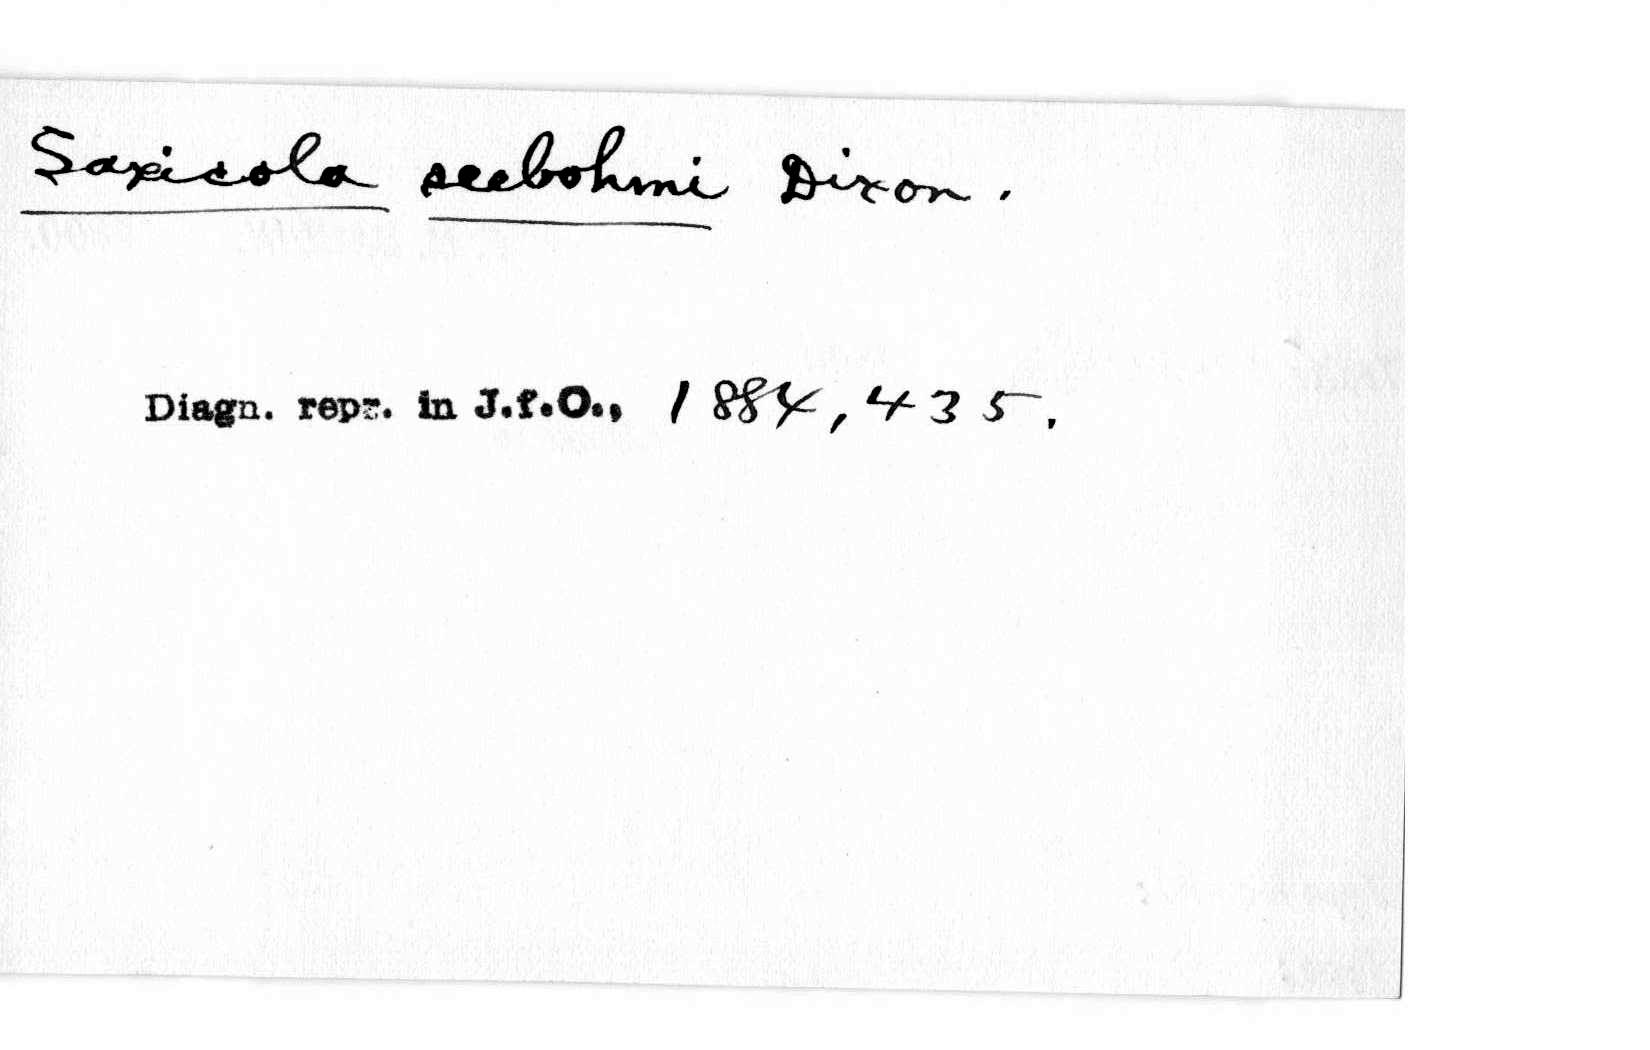 Saxicola seebohmi Dixon.
Diagn. repr. in J.f.O., 1884, 435.